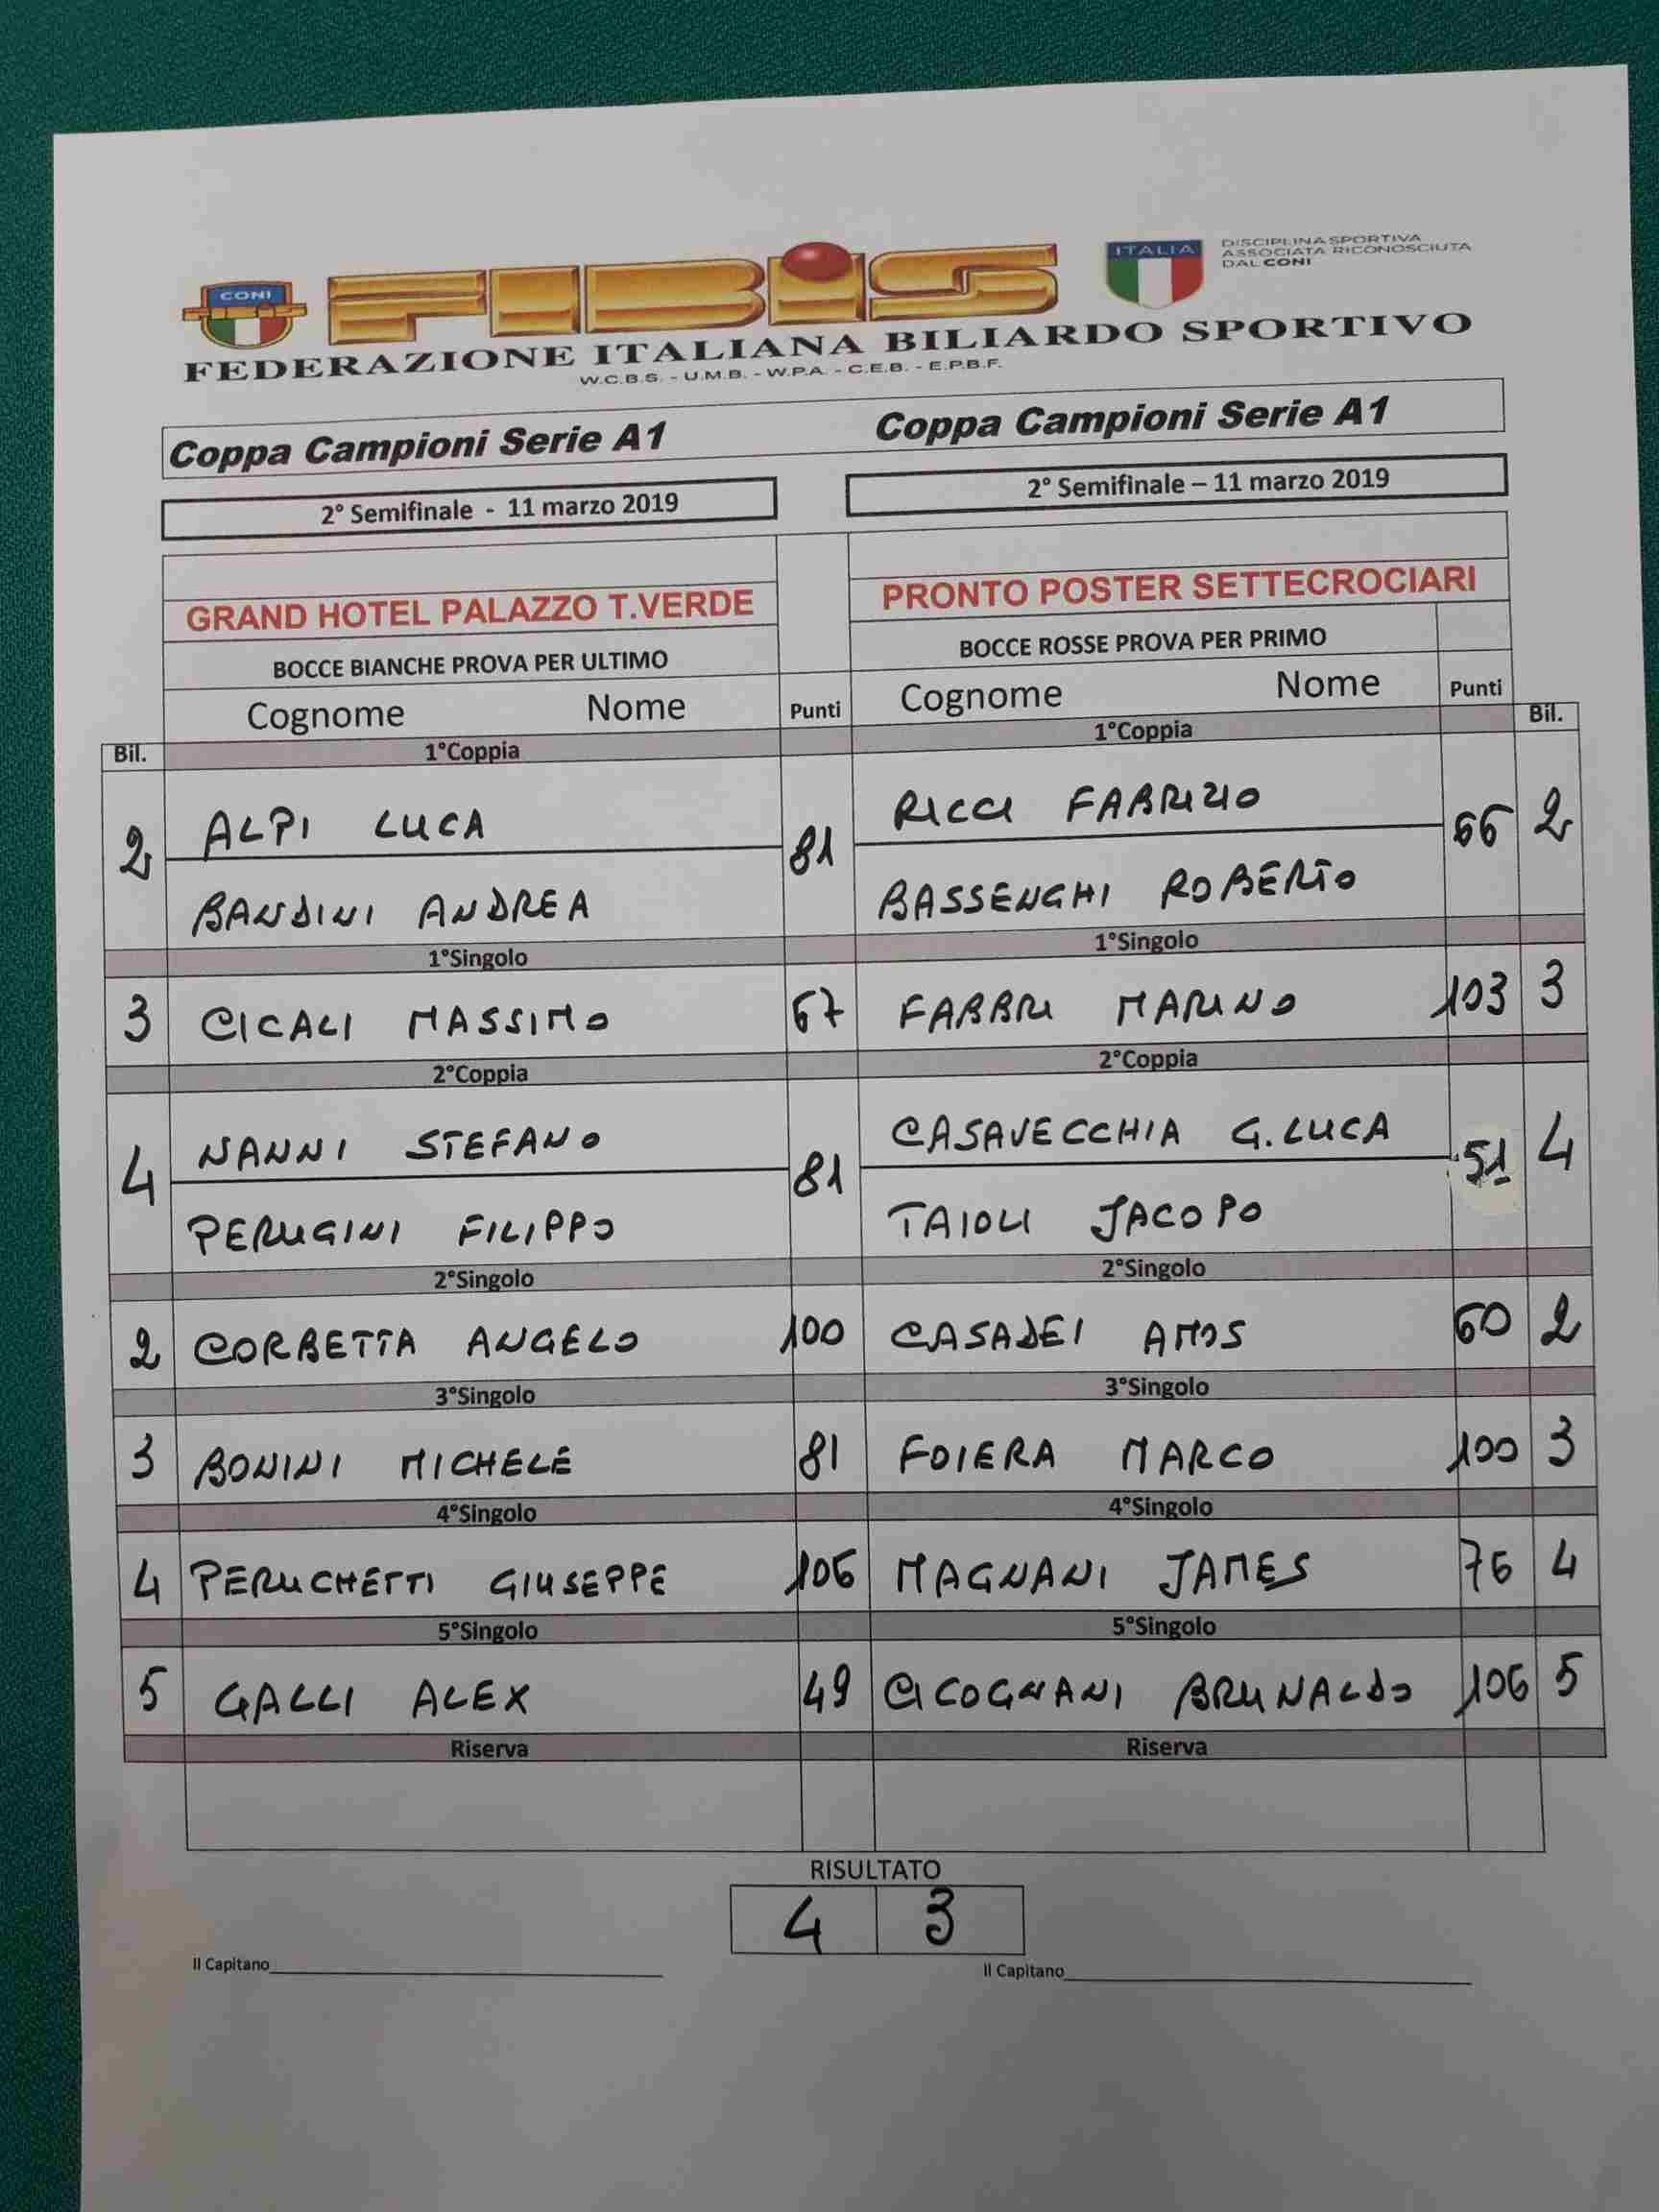 CONI FIBIS ITALIA DISCIPLINA SPORTIVA
ASSOCIATA RICONOSCIUTA
DAL CONI
FEDERAZIONE ITALIANA BILIARDO SPORTIVO
W.C.B.S. - U.M.B. - W.P.A. - C.E.B. - E.P.B.F.
Coppa Campioni Serie A1 Coppa Campioni Serie A1
2° Semifinale - 11 marzo 2019 2° Semifinale – 11 marzo 2019
GRAND HOTEL PALAZZO T.VERDE PRONTO POSTER SETTECROCIARI
BOCCE BIANCHE PROVA PER ULTIMO BOCCE ROSSE PROVA PER PRIMO
Cognome Nome Punti Cognome Nome Punti
Bil. 1°Coppia 1°Coppia Bil.
ALPI LUCA RICCI FABRIZIO
2 81 66 2
BANDINI ANDREA BASSENGHI ROBERTO
1°Singolo 1°Singolo
3 CICALI MASSIMO 67 FABBRI MARINO 103 3
2°Coppia 2°Coppia
NANNI STEFANO CASAVECCHIA G.LUCA
4 81 51 4
PERUGINI FILIPPO TAIOLI JACOPO
2°Singolo 2°Singolo
2 CORBETTA ANGELO 100 CASADEI AMOS 60 2
3°Singolo 3°Singolo
3 BONINI MICHELE 81 FOIERA MARCO 100 3
4°Singolo 4°Singolo
4 PERUCHETTI GIUSEPPE 106 MAGNANI JAMES 76 4
5°Singolo 5°Singolo
5 GALLI ALEX 49 CICOGNANI BRUNALDO 106 5
Riserva Riserva
RISULTATO
4 3
Il Capitano Il Capitano